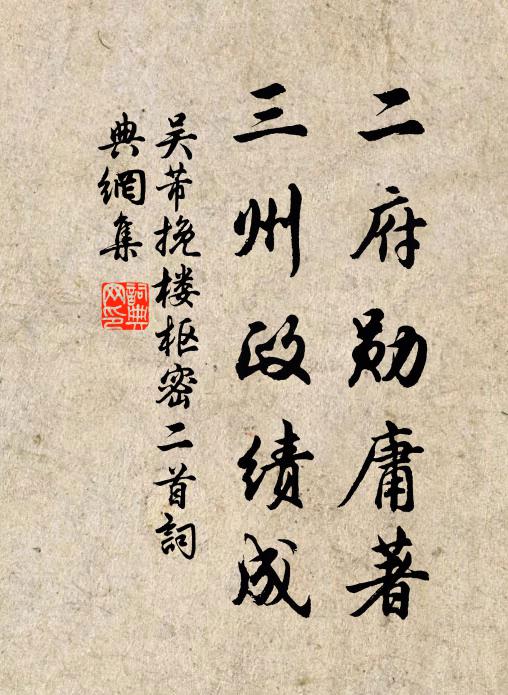 二府勋庸著
三州政绩成
吴芾挽楼枢密二首詞
典網集
詞典網印